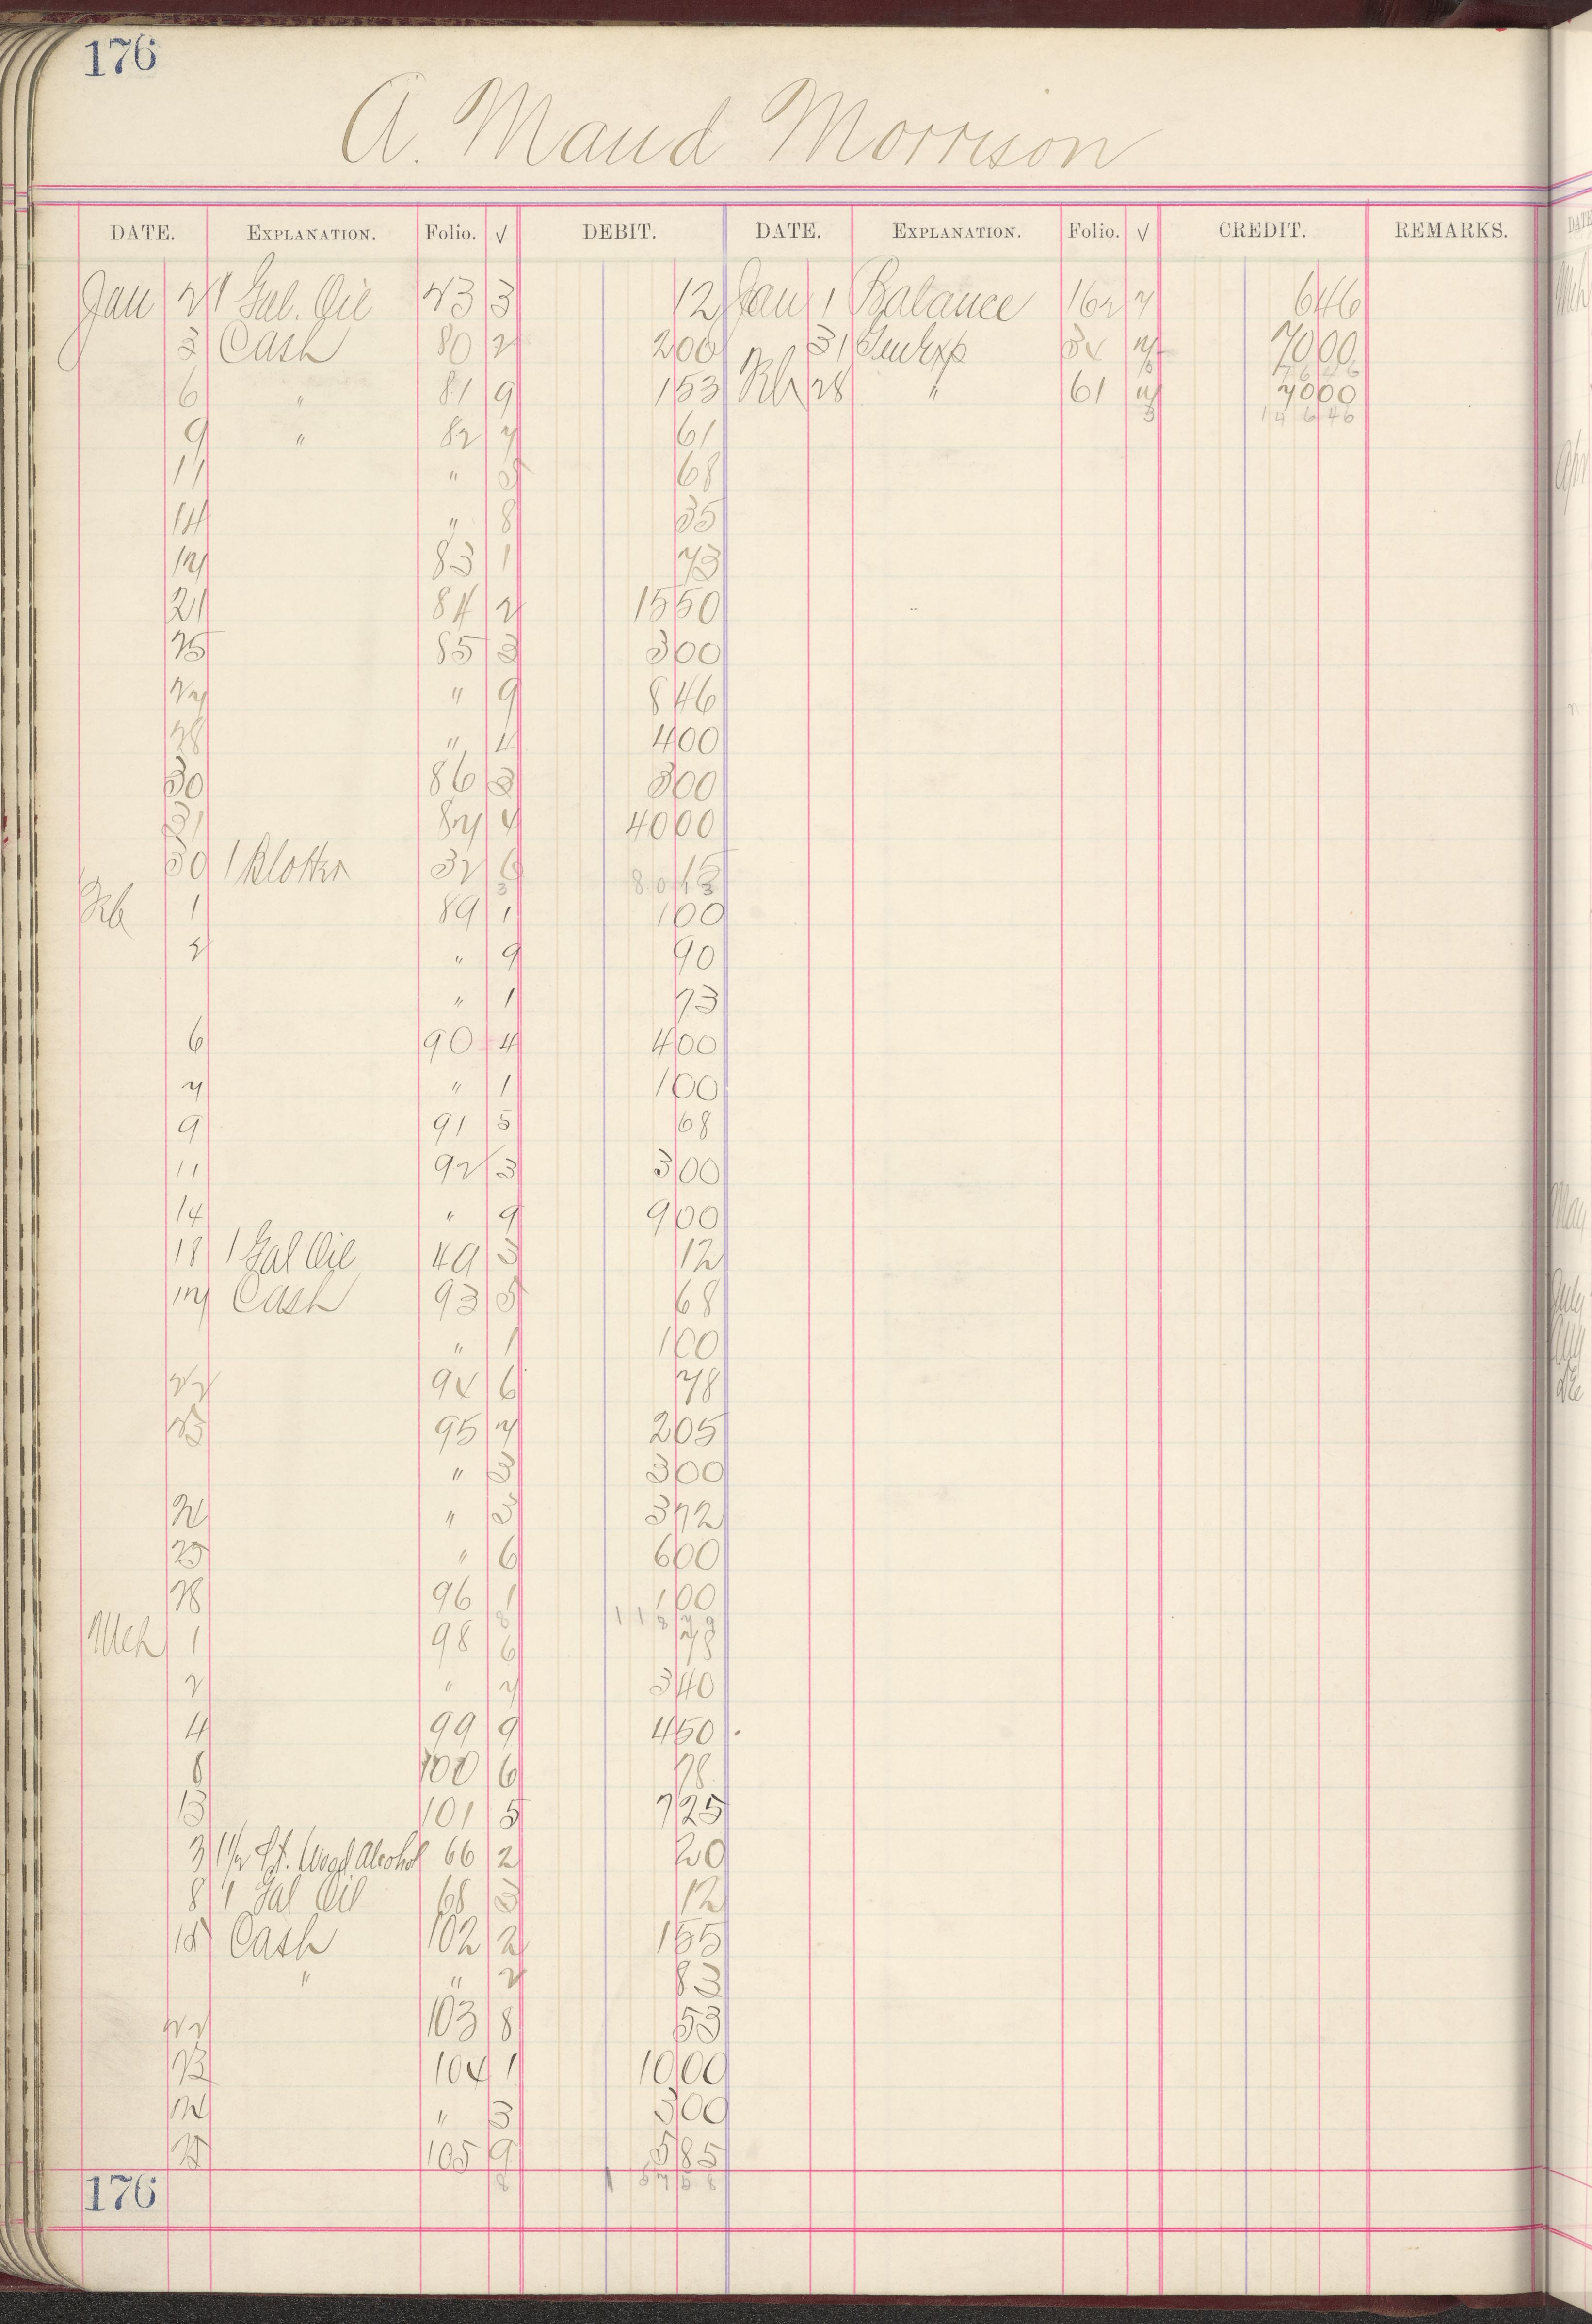 176
A. Maud Morrison
DATE. EXPLANATION. Folio. √ DEBIT. DATE. EXPLANATION. Folio. √ CREDIT. REMARKS.
Jan 2 1 Gal. Oil 23 3 12 Jan 1 Balance 162 7 6 46
3 Cash 80 2 2 00 31 Gen Exp 34 7 70 00
76 46
6 " 81 9 1 53 Feb 28 " 61 7 70 00
146 46
9 " 82 7 61
11 " 5 68
14 " 8 35
17 83 1 73
21 84 2 15 50
25 85 3 3 00
27 " 9 8 46
28 " 4 4 00
30 86 3 3 00
31 87 4 40 00
30 1 Blotter 32 6 15
80 13
Feb 1 89 1 1 00
2 " 9 90
" 1 73
6 90 4 4 00
7 " 1 1 00
9 91 5 68
11 92 3 3 00
14 " 9 9 00
18 1 Gal Oil 49 3 12
17 Cash 93 5 68
" 1 1 00
22 94 6 78
23 95 7 2 05
" 3 3 00
24 " 3 3 72
25 " 6 6 00
28 96 1 1 00
118 79
Mch 1 98 6 78
2 " 7 3 40
4 99 9 4 50
6 100 6 78
13 101 5 7 25
3 1 1/2 Pt. Wood Alcohol 66 2 20
8 1 Gal Oil 68 3 12
15 Cash 102 2 1 55
" " 2 83
22 103 8 53
23 104 1 10 00
24 " 3 3 00
25 105 9 5 85
8 157 58
176